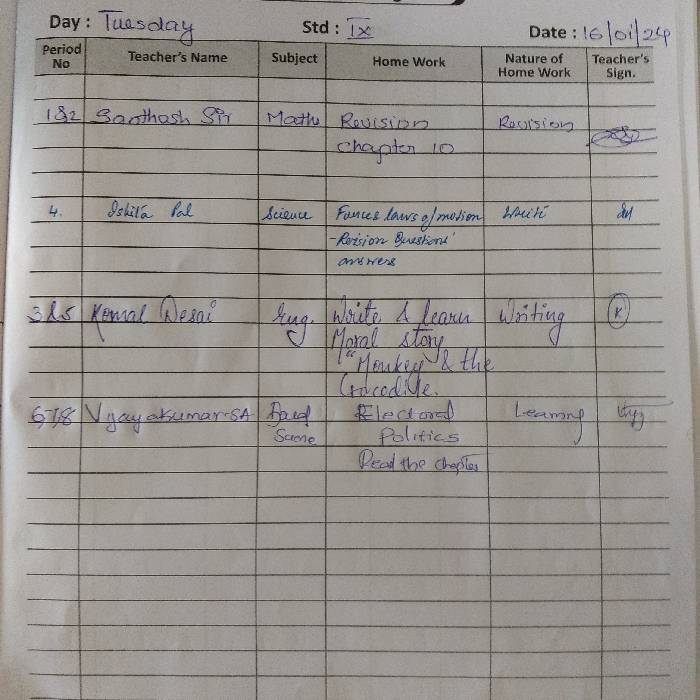 Day : Tuesday Std : IX Date : 16/01/24
Period No Teacher's Name Subject Home Work Nature of Home Work Teacher's Sign.
1&2 Santhosh Sir Maths Revision Revision
Chapter 10
4. Ishita Pal Science Forces laws of motion Write
- Revision Questions'
answers
3&5 Komal Desai Eng. Write & learn Writing K
Moral story
"Monkey & the
Crocodile.
6,7,8 Vijayakumar SA Electoral Learning
Politics
Read the chapter